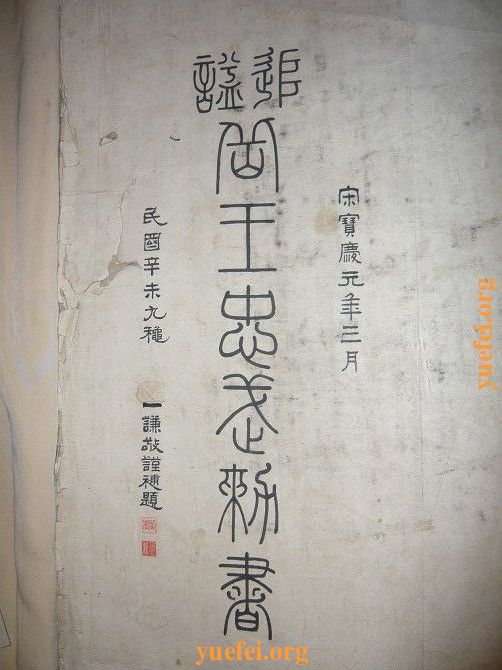 宋寶慶元年三月
追諡
岳王忠武勅書
民國辛未九穐
一謙敬謹補題
yuefei.org
yuefei.org